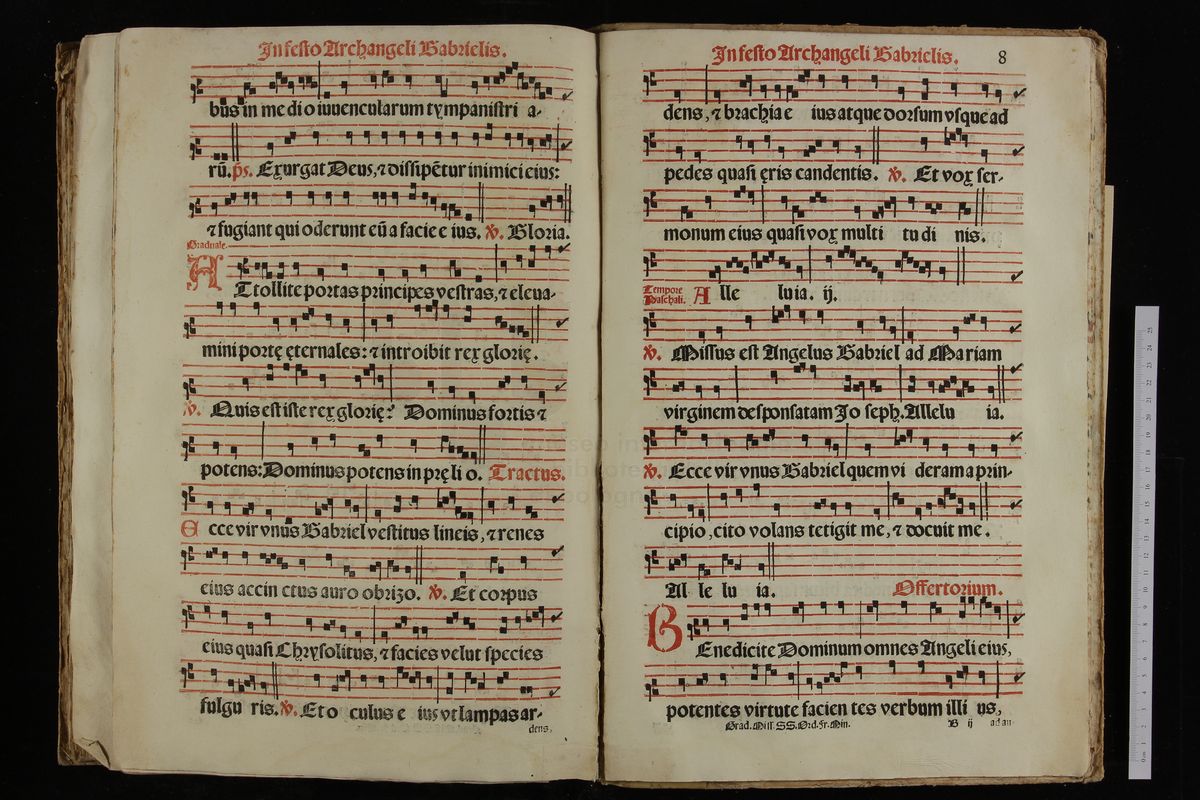 In festo Archangeli Gabrielis.
bus in me di o iuuencularum tympanistri a-
rū. ps. Exurgat Deus, ⁊ dissipētur inimici eius:
⁊ fugiant qui oderunt eū a facie e ius. ℣. Gloria.
Graduale.
ATtollite portas principes vestras, ⁊ eleua-
mini portę ęternales: ⁊ introibit rex glorię.
℣. Quis est iste rex glorię? Dominus fortis ⁊
potens: Dominus potens in pręli o. Tractus.
Ecce vir vnus Gabriel vestitus lineis, ⁊ renes
eius accin ctus auro obrizo. ℣. Et corpus
eius quasi Chrysolitus, ⁊ facies velut species
fulgu ris. ℣. Et o culus e ius vt lampas ar-
dens,
In festo Archangeli Gabrielis. 8
dens, ⁊ brachia e ius atque dorsum vsque ad
pedes quasi ęris candentis. ℣. Et vox ser-
monum eius quasi vox multi tu di nis.
Tempore
Paschali. Alle luia. ij.
℣. Missus est Angelus Gabriel ad Mariam
virginem desponsatam Jo seph. Allelu ia.
℣. Ecce vir vnus Gabriel quem vi deram a prin-
cipio, cito volans tetigit me, ⁊ docuit me.
Al le lu ia. Offertorium.
BEnedicite Dominum omnes Angeli eius,
potentes virtute facien tes verbum illi us,
Grad. Miss. SS. Ord. Fr. Min. B ij ad au-